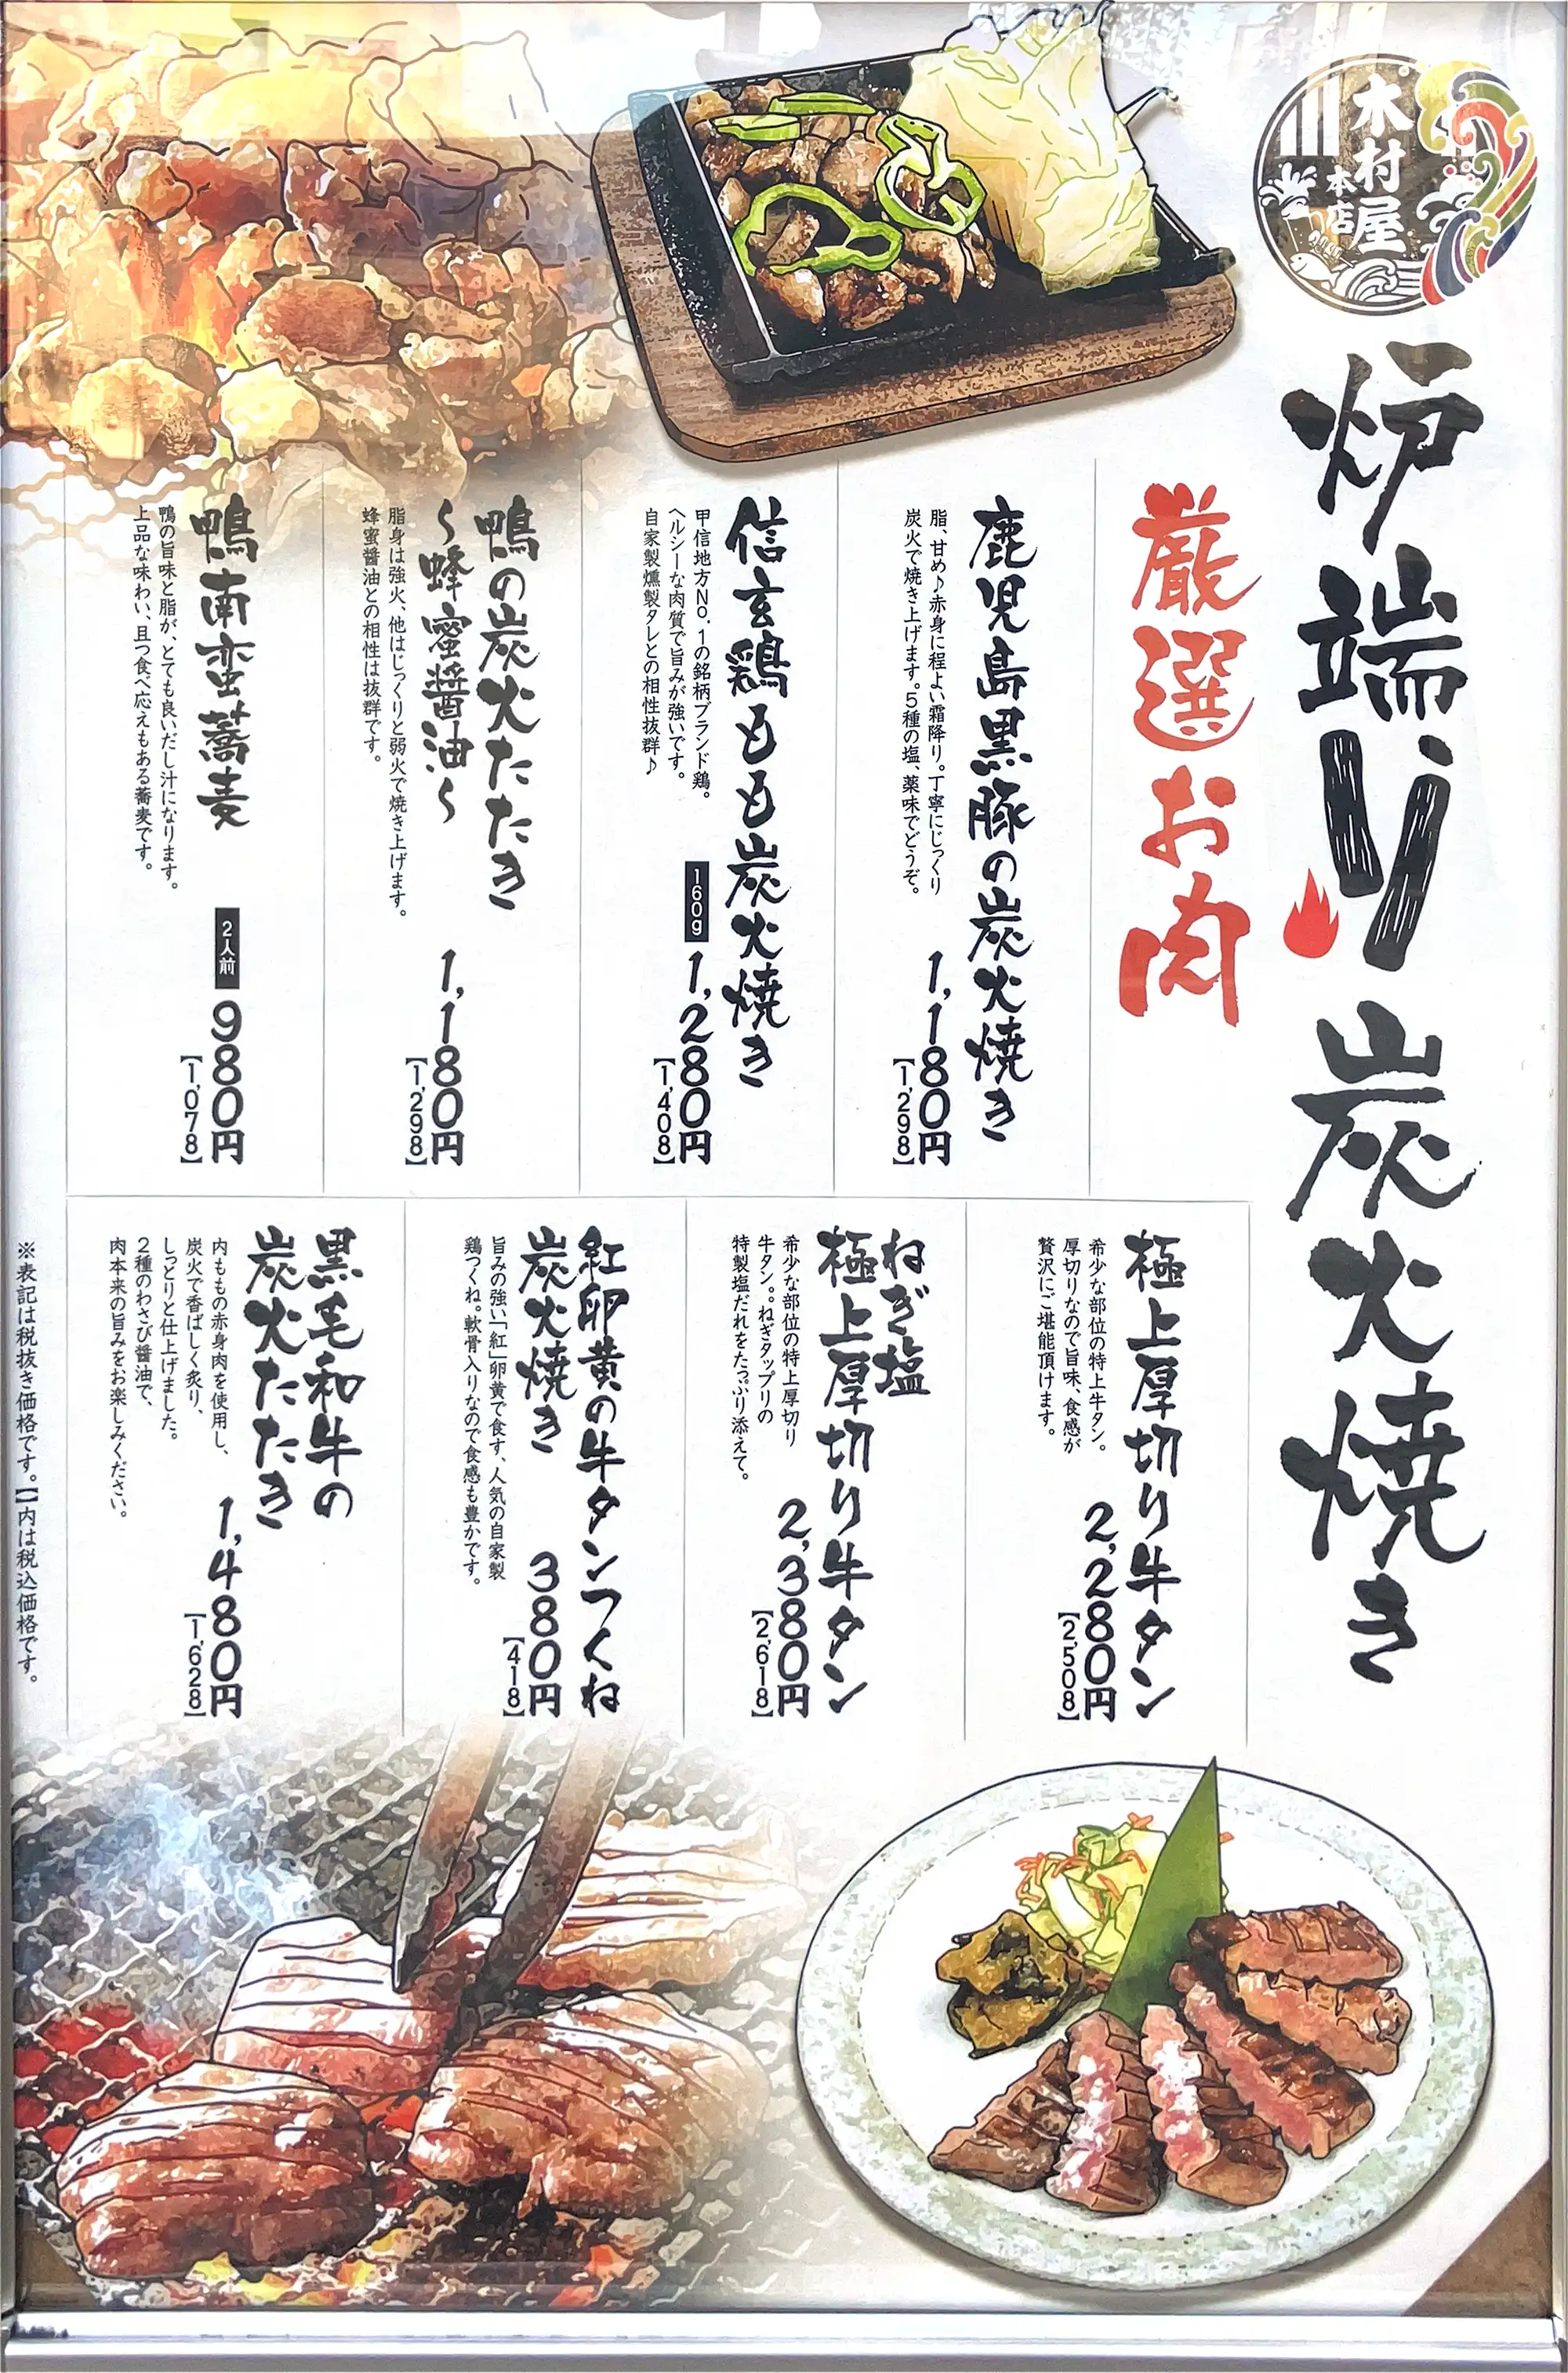 木村屋
本店
炉端り炭火焼き
厳選お肉
鹿児島黒豚の炭火焼き
脂、甘め♪赤身に程よい霜降り。丁寧にじっくり
炭火で焼き上げます。5種の塩、薬味でどうぞ。
1,180円
【1,298】
信玄鶏もも炭火焼き
甲信地方No.1の銘柄ブランド鶏。
ヘルシーな肉質で旨みが強いです。
自家製燻製タレとの相性抜群♪
160g
1,280円
【1,408】
鴨の炭火たたき
～蜂蜜醤油～
脂身は強火、他はじっくりと弱火で焼き上げます。
蜂蜜醤油との相性は抜群です。
1,180円
【1,298】
鴨南蛮蕎麦
鴨の旨味と脂が、とても良いだし汁になります。
上品な味わい、且つ食べ応えもある蕎麦です。
2人前
980円
【1,078】
極上厚切り牛タン
希少な部位の特上牛タン。
厚切りなので旨味、食感が
贅沢にご堪能頂けます。
2,280円
【2,508】
ねぎ塩
極上厚切り牛タン
希少な部位の特上厚切り
牛タン。。ねぎタップリの
特製塩だれをたっぷり添えて。
2,380円
【2,618】
紅卵黄の牛タンつくね
炭火焼き
旨みの強い「紅」卵黄で食す、人気の自家製
鶏つくね。軟骨入りなので食感も豊かです。
380円
【418】
黒毛和牛の
炭火たたき
内ももの赤身肉を使用し、
炭火で香ばしく炙り、
しっとりと仕上げました。
2種のわさび醤油で、
肉本来の旨みをお楽しみください。
1,480円
【1,628】
※表記は税抜き価格です。【】内は税込価格です。